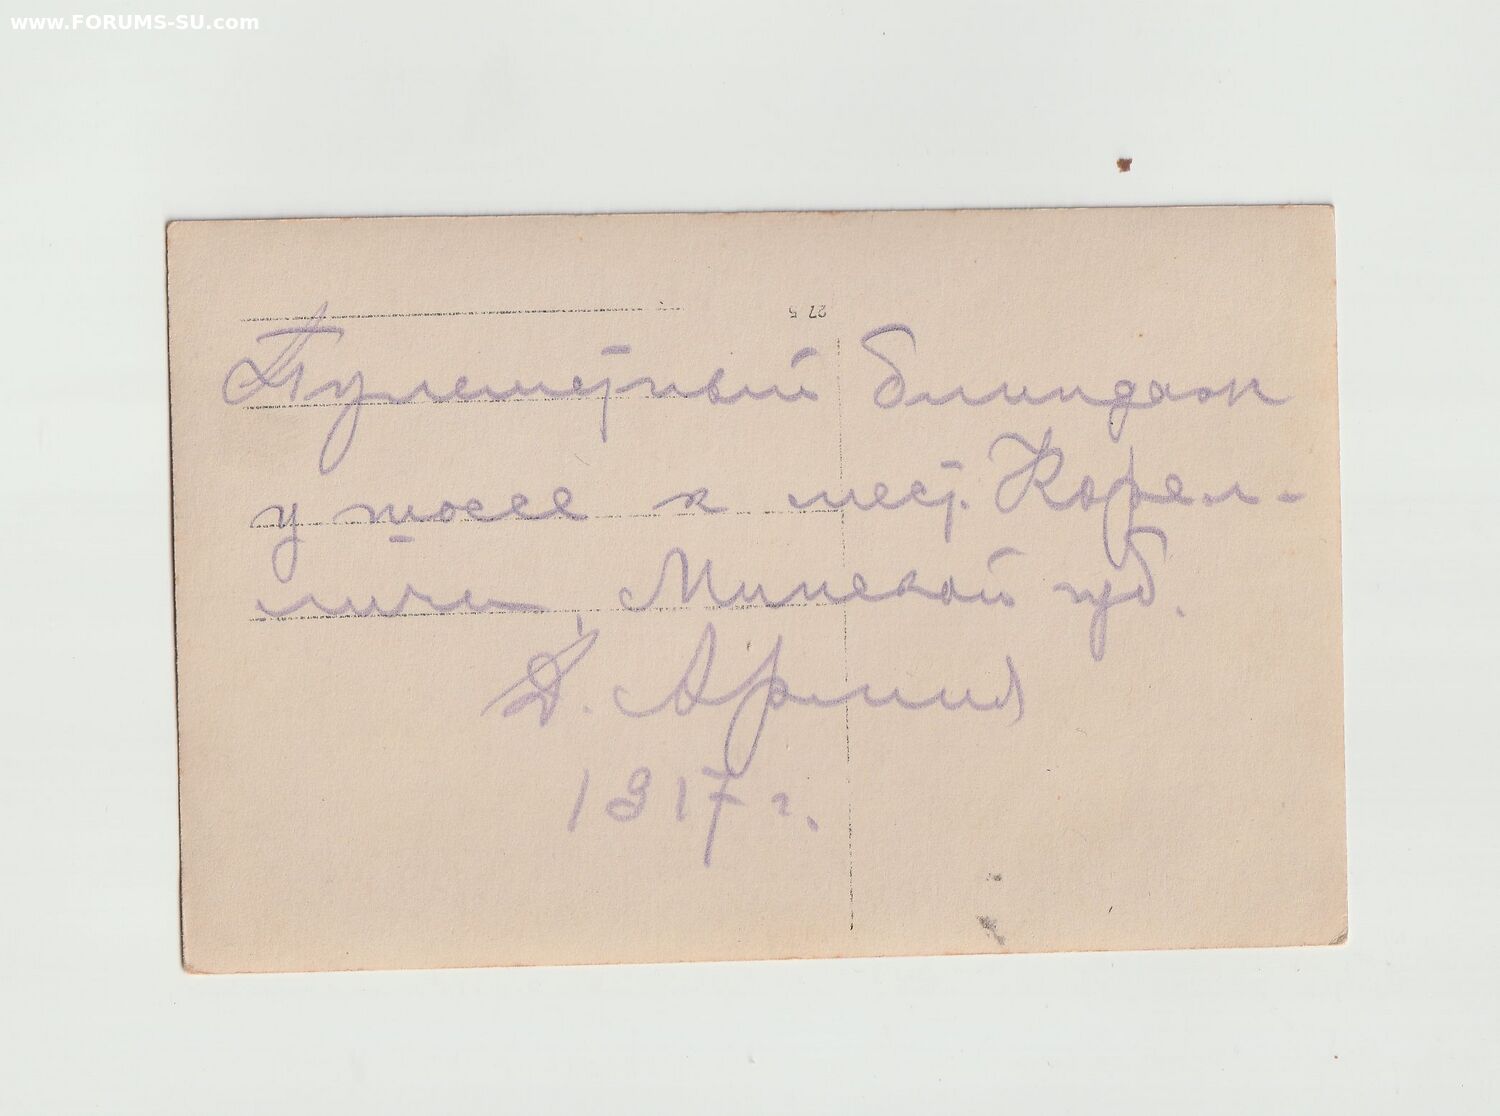 www.FORUMS-SU.com
27 5
Пулеметный блиндаж
у шоссе к мест. Корел-
личи, Минской губ.
Д. Армия
1917 г.